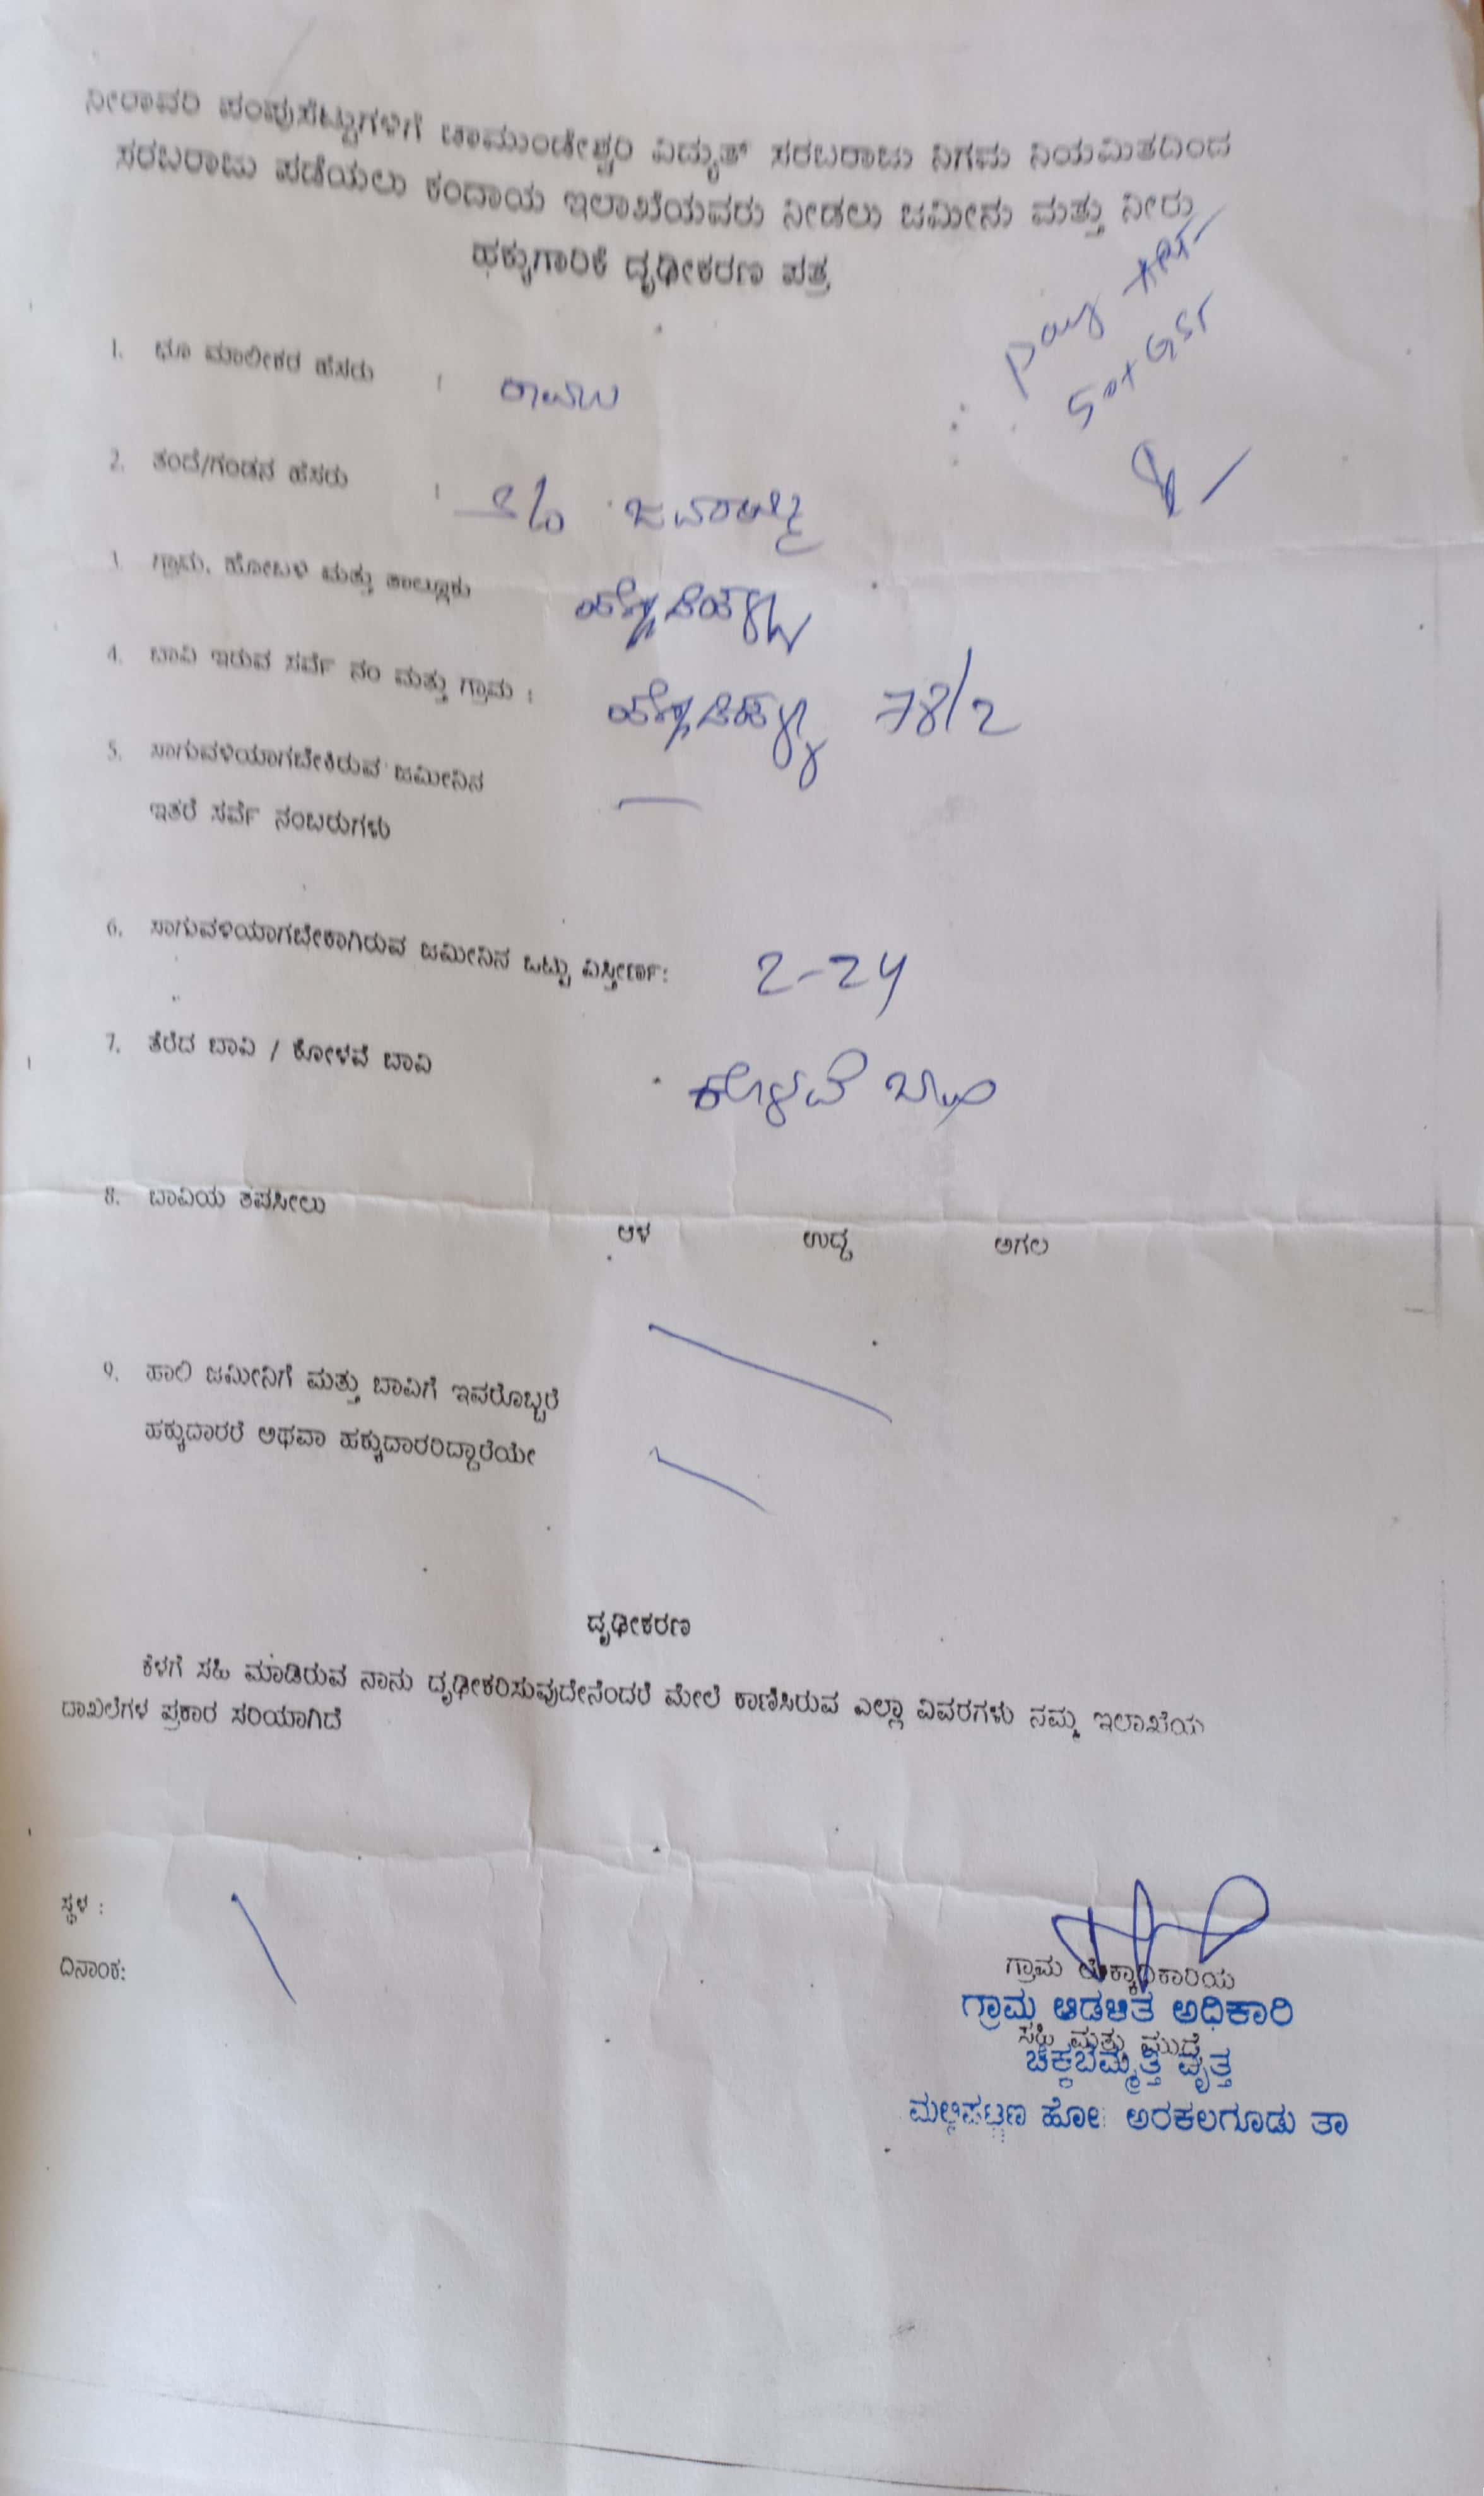 ನೀರಾವರಿ ಪಂಪುಸೆಟ್ಟುಗಳಿಗೆ ಚಾಮುಂಡೇಶ್ವರಿ ವಿದ್ಯುತ್ ಸರಬರಾಜು ನಿಗಮ ನಿಯಮಿತದಿಂದ
ಸರಬರಾಜು ಪಡೆಯಲು ಕಂದಾಯ ಇಲಾಖೆಯವರು ನೀಡಲು ಜಮೀನು ಮತ್ತು ನೀರು
ಹಕ್ಕುಗಾರಿಕೆ ದೃಢೀಕರಣ ಪತ್ರ
pay
50+GST
1. ಭೂ ಮಾಲೀಕರ ಹೆಸರು :
2. ತಂದೆ/ಗಂಡನ ಹೆಸರು :
3. ಗ್ರಾಮ, ಹೋಬಳಿ ಮತ್ತು ತಾಲ್ಲೂಕು
4. ಬಾವಿ ಇರುವ ಸರ್ವೆ ನಂ ಮತ್ತು ಗ್ರಾಮ : 78/2
5. ಸಾಗುವಳಿಯಾಗಬೇಕಿರುವ ಜಮೀನಿನ
ಇತರೆ ಸರ್ವೆ ನಂಬರುಗಳು
6. ಸಾಗುವಳಿಯಾಗಬೇಕಾಗಿರುವ ಜಮೀನಿನ ಒಟ್ಟು ವಿಸ್ತೀರ್ಣ: 2-24
7. ತೆರೆದ ಬಾವಿ / ಕೋಳವೆ ಬಾವಿ ಕೊಳವೆ ಬಾವಿ
8. ಬಾವಿಯ ತಪಸೀಲು
ಆಳ ಉದ್ದ ಅಗಲ
9. ಹಾಲಿ ಜಮೀನಿಗೆ ಮತ್ತು ಬಾವಿಗೆ ಇವರೊಬ್ಬರೆ
ಹಕ್ಕುದಾರರೆ ಅಥವಾ ಹಕ್ಕುದಾರರಿದ್ದಾರೆಯೇ
ದೃಢೀಕರಣ
ಕೆಳಗೆ ಸಹಿ ಮಾಡಿರುವ ನಾನು ದೃಢೀಕರಿಸುವುದೇನೆಂದರೆ ಮೇಲೆ ಕಾಣಿಸಿರುವ ಎಲ್ಲಾ ವಿವರಗಳು ನಮ್ಮ ಇಲಾಖೆಯ
ದಾಖಲೆಗಳ ಪ್ರಕಾರ ಸರಿಯಾಗಿದೆ
ಸ್ಥಳ :
ದಿನಾಂಕ:
ಗ್ರಾಮ ಲೆಕ್ಕಾಧಿಕಾರಿಯ
ಗ್ರಾಮ ಆಡಳಿತ ಅಧಿಕಾರಿ
ಸಹಿ ಮತ್ತು ಮುದ್ರೆ
ವೃತ್ತ
ಮಲ್ಲಿಪಟ್ಟಣ ಹೋ: ಅರಕಲಗೂಡು ತಾ